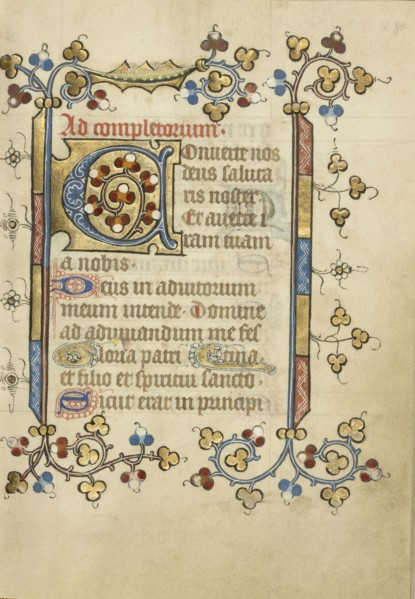 Ad completorium.
Conuerte nos
deus saluta
ris noster.
Et auerte i
ram tuam
a nobis.
Deus in adiutorium
meum intende. Domine
ad adiuuandum me fes
tina. Gloria patri
et filio et spiritui sancto.
Sicut erat in principi